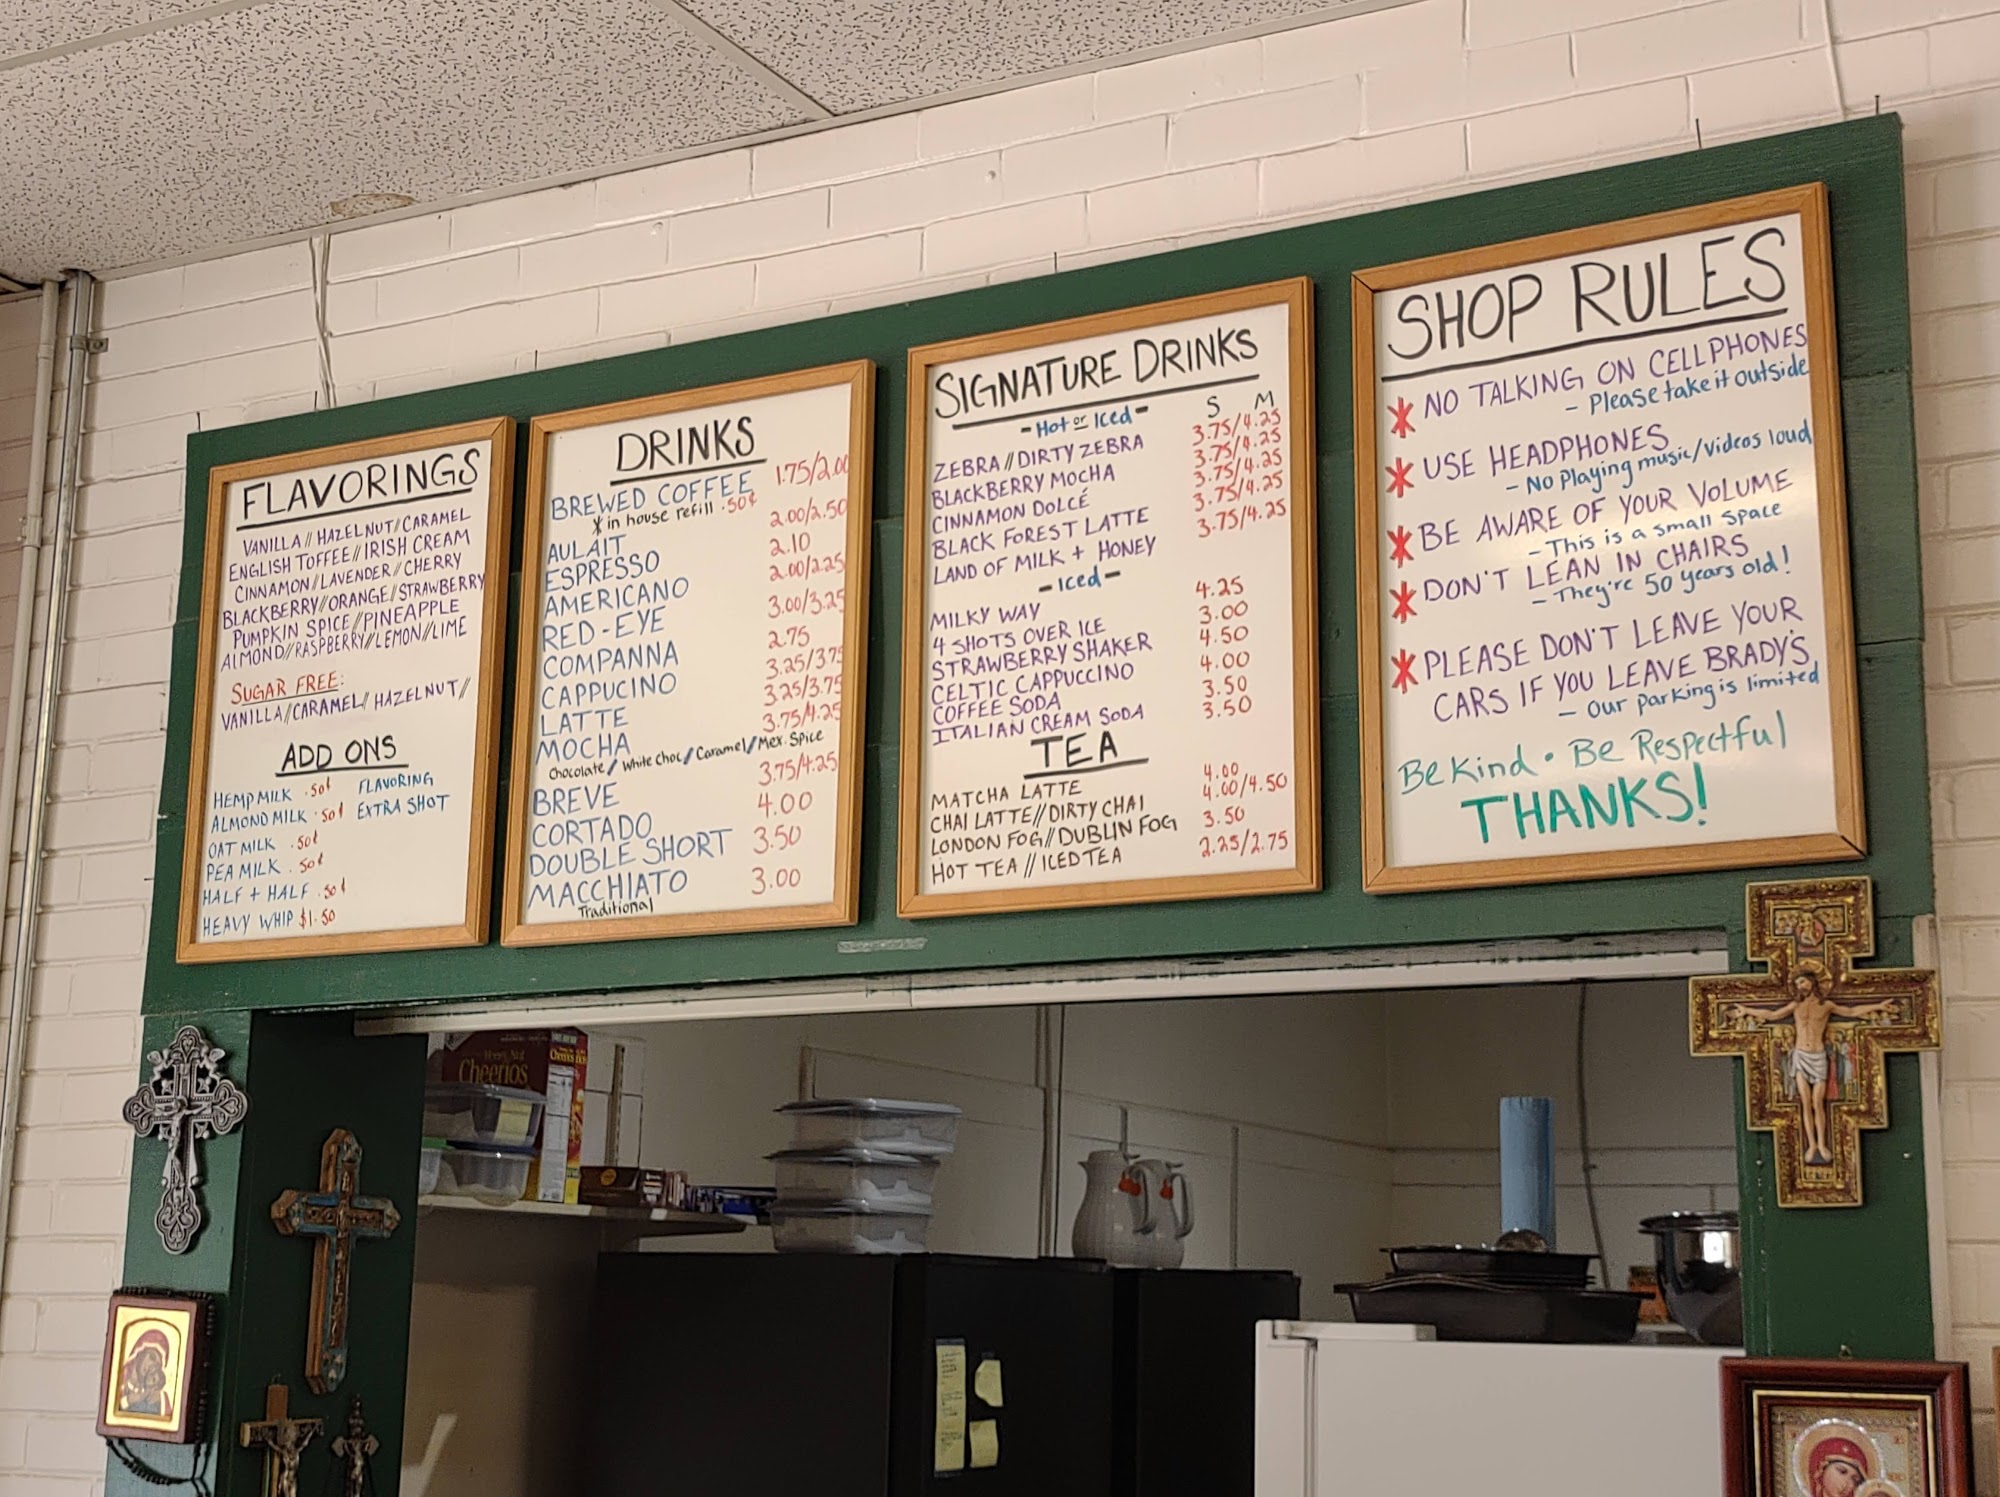 FLAVORINGS
VANILLA // HAZELNUT // CARAMEL
ENGLISH TOFFEE // IRISH CREAM
CINNAMON // LAVENDER // CHERRY
BLACKBERRY // ORANGE // STRAWBERRY
PUMPKIN SPICE // PINEAPPLE
ALMOND // RASPBERRY // LEMON // LIME
SUGAR FREE:
VANILLA // CARAMEL // HAZELNUT //
ADD ONS
HEMP MILK .50¢ FLAVORING
ALMOND MILK .50¢ EXTRA SHOT
OAT MILK .50¢
PEA MILK .50¢
HALF + HALF .50¢
HEAVY WHIP $1.50
DRINKS
BREWED COFFEE 1.75/2.00
* in house refill .50¢
AULAIT 2.00/2.50
ESPRESSO 2.10
AMERICANO 2.00/2.25
RED-EYE 3.00/3.25
COMPANNA 2.75
CAPPUCINO 3.25/3.75
LATTE 3.25/3.75
MOCHA 3.75/4.25
Chocolate / White Choc / Caramel / Mex. Spice
BREVE 3.75/4.25
CORTADO 4.00
DOUBLE SHORT 3.50
MACCHIATO 3.00
Traditional
SIGNATURE DRINKS
- Hot or Iced - S M
ZEBRA // DIRTY ZEBRA 3.75/4.25
BLACKBERRY MOCHA 3.75/4.25
CINNAMON DOLCÉ 3.75/4.25
BLACK FOREST LATTE 3.75/4.25
LAND OF MILK + HONEY 3.75/4.25
- Iced -
MILKY WAY 4.25
4 SHOTS OVER ICE 3.00
STRAWBERRY SHAKER 4.50
CELTIC CAPPUCCINO 4.00
COFFEE SODA 3.50
ITALIAN CREAM SODA 3.50
TEA
MATCHA LATTE 4.00
CHAI LATTE // DIRTY CHAI 4.00/4.50
LONDON FOG // DUBLIN FOG 3.50
HOT TEA // ICED TEA 2.25/2.75
SHOP RULES
* NO TALKING ON CELLPHONES
- Please take it outside
* USE HEADPHONES
- No Playing music/videos loud
* BE AWARE OF YOUR VOLUME
- This is a small space
* DON'T LEAN IN CHAIRS
- They're 50 years old!
* PLEASE DON'T LEAVE YOUR
CARS IF YOU LEAVE BRADY'S
- Our parking is limited
Be Kind • Be Respectful
THANKS!
Honey Nut
Cheerios
Cheerios